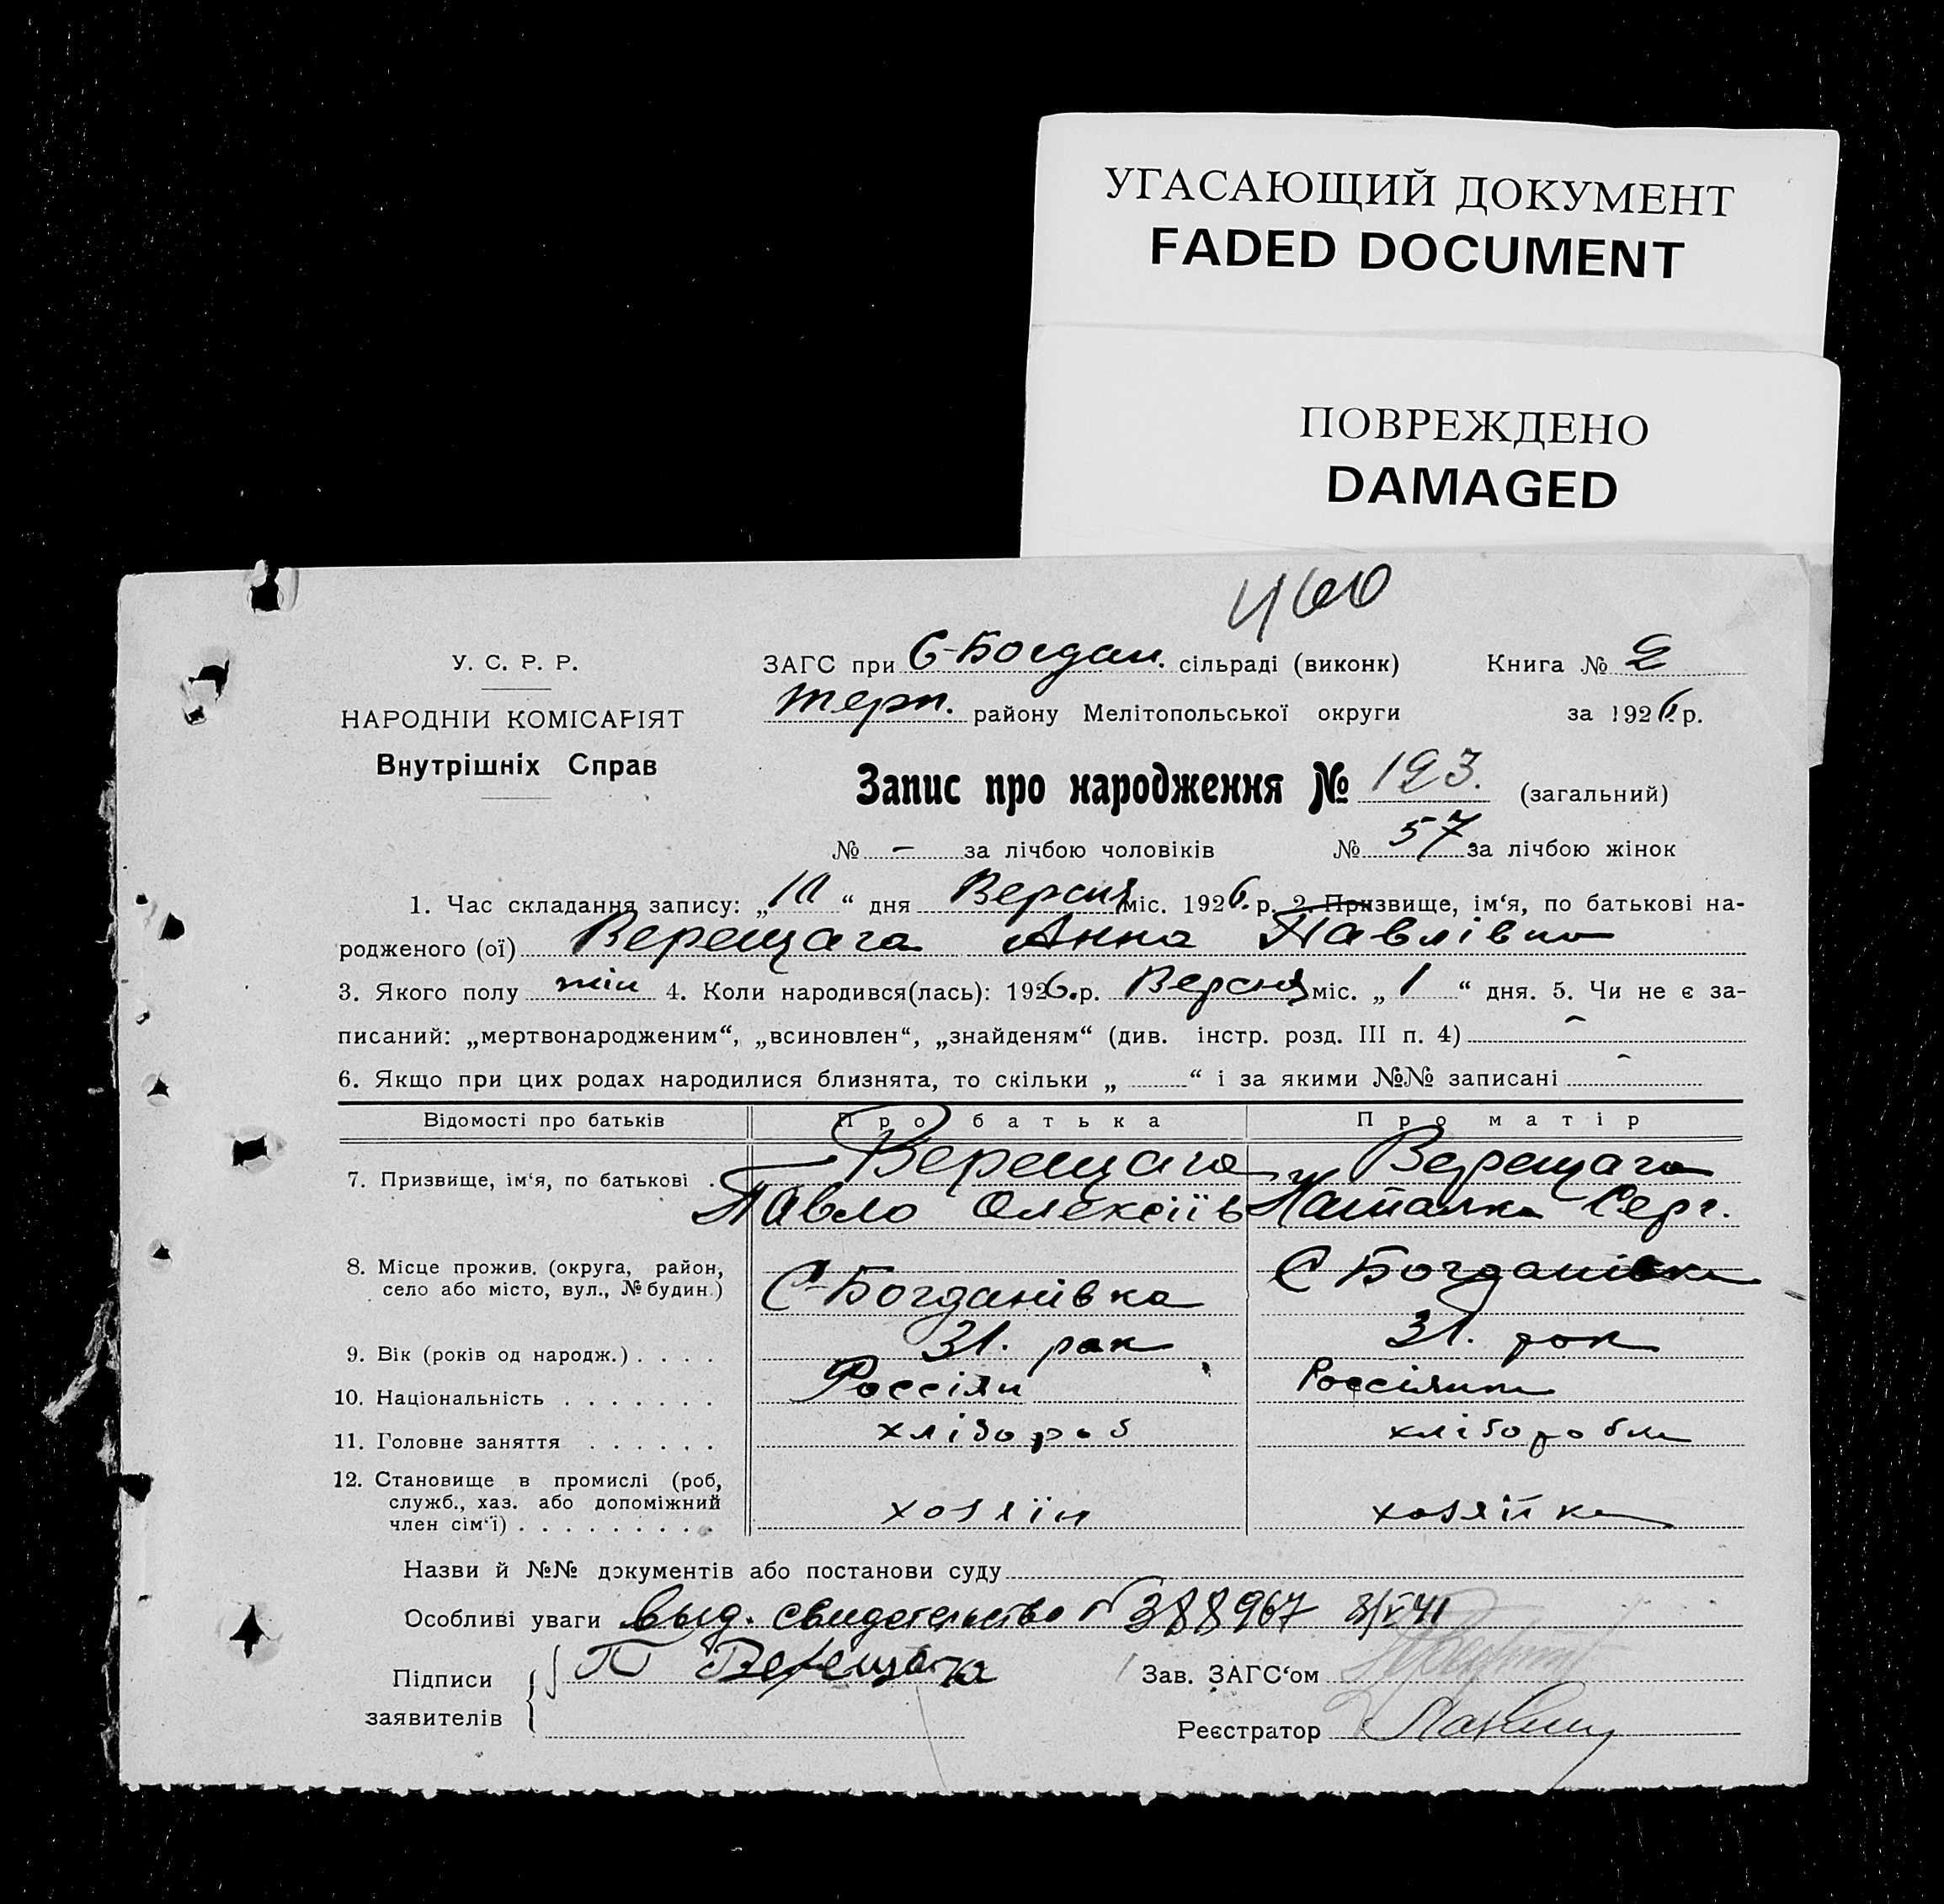 УГАСАЮЩИЙ ДОКУМЕНТ
FADED DOCUMENT
ПОВРЕЖДЕНО
DAMAGED
460
У. С. Р. Р.
НАРОДНІЙ КОМІСАРІЯТ
Внутрішніх Справ
ЗАГС при С-Богдан. сільраді (виконк) Книга № 2
Терп. району Мелітопольської округи за 1926 р.
Запис про народження № 193. (загальний)
№ - за лічбою чоловіків № 57 за лічбою жінок
1. Час складання запису: „10“ дня Версня міс. 1926 р. 2. Призвище, ім‘я, по батькові на-
родженого (ої) Верещага Анна Павлівна
3. Якого полу жін 4. Коли народився(лась): 1926.р. Версня міс. „1“ дня. 5. Чи не є за-
писаний: „мертвонародженим“, „всиновлен“, „знайденям“ (див. інстр. розд. III п. 4) -
6. Якщо при цих родах народилися близнята, то скільки „ “ і за якими №№ записані -
Відомості про батьків Про батька Про матір
7. Призвище, ім‘я, по батькові . Верещага Верещага
Павло Олексіїв Наталка Серг.
8. Місце прожив. (округа, район,
село або місто, вул., № будин.) С-Богданівка С Богданівка
9. Вік (років од народж.) . . . . 31. рак 31. рок
10. Національність . . . . . . . Россіян Россіянка
11. Головне заняття . . . . . . хлібороб хлібороб
12. Становище в промислі (роб,
служб., хаз. або допоміжний
член сім‘ї) . . . . . . . . . хозяїн хозяйка
Назви й №№ документів або постанови суду
Особливі уваги выд. свидетельство № 388967 3/V 41
Підписи П Верещага Зав. ЗАГС‘ом
заявителів Реєстратор